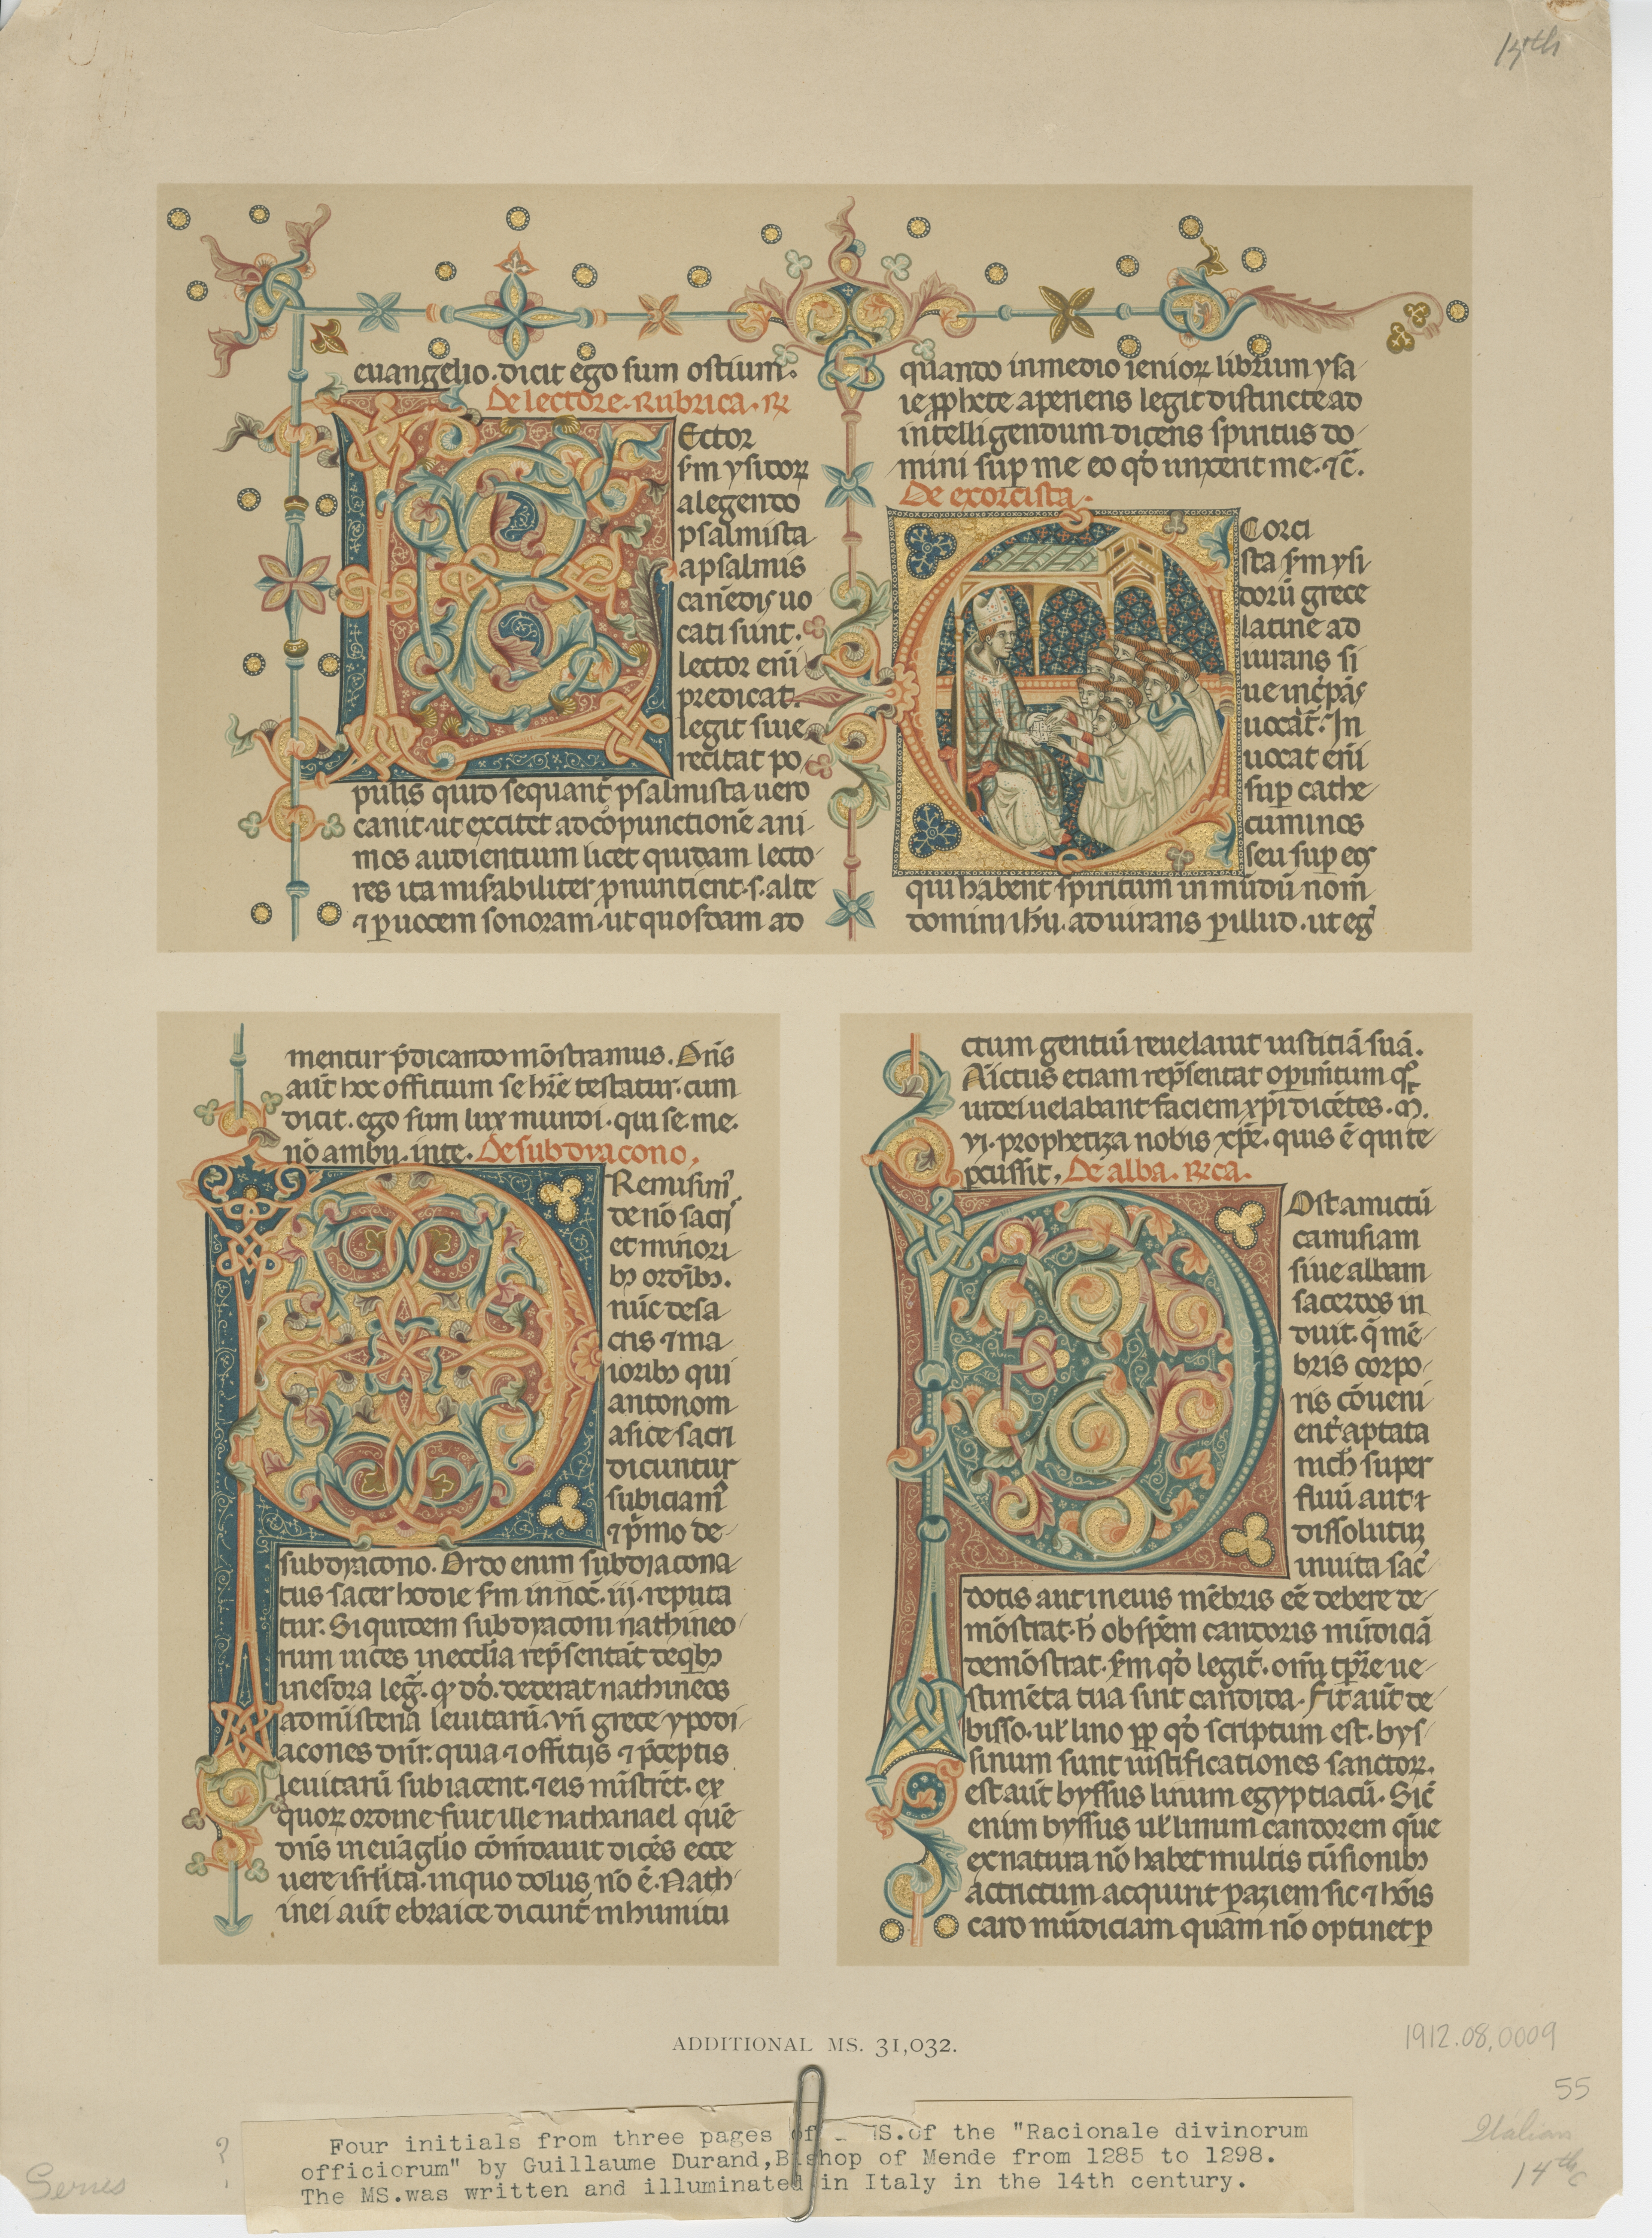 14th
euangelio. dicit ego sum ostium.
De lectore. Rubrica. R
Ector
s'm ysidoꝝ
a legendo
psalmista
a psalmis
canēdis uo
cati sunt.
lector eni
predicat.
legit siue
recitat po
pulis quid sequant̄ psalmista uero
canit. ut excitet ad cōpunctionē ani
mos audientium licet quidam lecto
res ita misabiliter ꝓnuntient. s. alte
⁊ ꝑ uocem sonoram. ut quosdam ad
quando in medio senioꝝ librum ysa
ie ꝓphete aperiens legit distincte ad
intelligendum dicens spiritus do
mini sup me eo qd̄ unxerit me. ⁊c̄.
De exorcista.
Corci
sta s'm ysi
dorū grece
latine ad
iurans si
ue incpās
uocat̄. In
uocat eni
sup cathe
cuminos
seu sup eos
qui habent spiritum inmūdū nom̄
domini ihū. adiurans ꝑ illud. ut eḡ
mentur p̄dicando mōstramus. Dn̄s
aut̄ hoc offitium se hr̄e testatur. cum
dicit. ego sum lux mundi. qui se. me.
nō ambu. in te. De subdyacono.
Remisim'
de nō sacri
et minori
bꝫ ordībꝫ.
nūc de sa
cris ⁊ ma
ioribꝫ qui
antonom
asice sacri
dicuntur
subiciam'
⁊ p̄mo de
subdyacono. Ordo enim subdiacona
tus sacer hodie s'm innoc̄. iij. reputa
tur. Siquidem subdyaconi nathineo
rum uices in ecclīa rep̄sentāt de qͥbꝫ
in esdra leḡ. qꝫ dd̄. dederat nathineos
ad misteria leuitarū. Vn̄ grece ypodi
acones dn̄r. quia ⁊ offitijs ⁊ p̄ceptis
leuitarū subiacent. ⁊ eis mistrēt. ex
quoꝝ ordine fuit ille nathanael quē
dn̄s in euāglio cōm̄dauit dicēs ecce
uere isrlita. in quo dolus nō ē. Nath
inei aut̄ ebraice dicunt̄ in humitu
ctum gentiū reuelauit iustitiā suā.
Aictus etiam rep̄sentat operim̄tum qͦ
iudei uelabant faciem xp̄i dicētes. M.
vi. prophetiza nobis xp̄e. quis ē qui te
pcussit, De alba. R̄ca.
Ost amictū
camisiam
siue albam
sacerdos in
duit. q̄ mē
bris corpo
ris cōueni
ent̄ aptata
nich super
fluū aut ⁊
dissolutuꝫ
in uita sac̄
dotis aut in eius mēbris eē debere de
mōstrat. h̄ ob spēm candoris mūdiciā
demōstrat. s'm qd̄ legit̄. omi tp̄re ue
stimēta tua sint candida. Fit aut̄ de
bisso. uł lino ꝓp qd̄ scriptum est. bys
sinum sunt iustificationes sanctoꝝ.
est aut̄ byssus linum egyptiacū. Sic̄
enim byssus uł linum candorem quē
ex natura nō habet multis tūsionibꝫ
actrictum acquirit ꝑ aziem sic ⁊ hōis
caro mūdiciam quam nō optinet ꝑ
ADDITIONAL MS. 31,032.
1912.08.0009
55
Italian
14th c
Series
?
Four initials from three pages of MS. of the "Racionale divinorum
officiorum" by Guillaume Durand, Bishop of Mende from 1285 to 1298.
The MS. was written and illuminated in Italy in the 14th century.